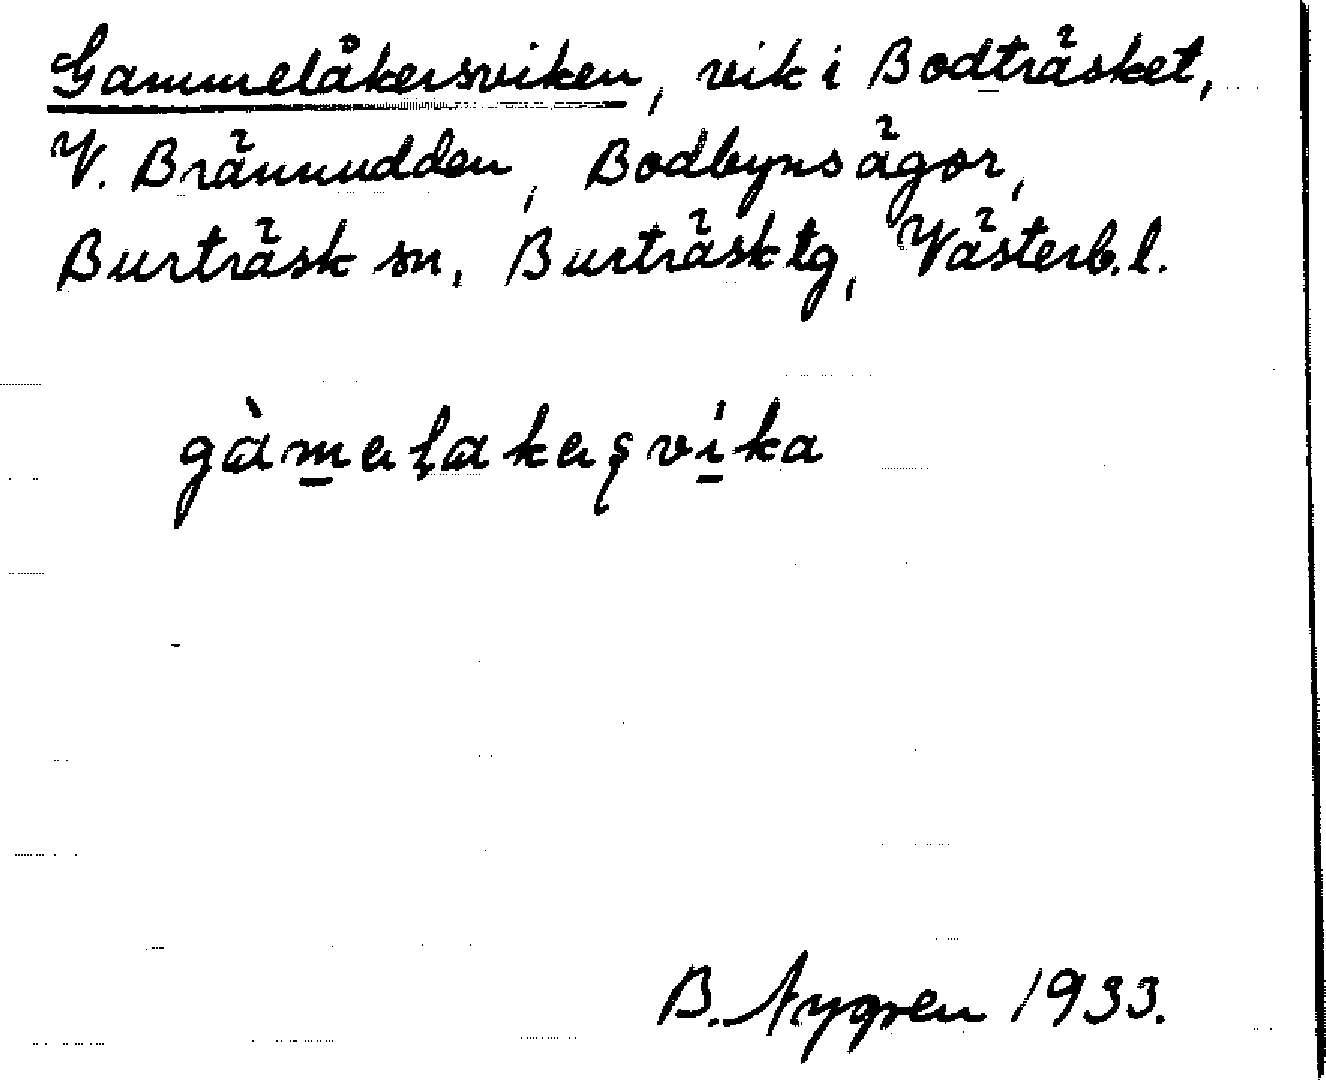 Gammelåkersviken, vik i Bodträsket,
V. Brännudden, Bodbyns ägor,
Burträsk sn, Burträsk tg, Västerb. l.
gàm̲eḷakeʂvi̲ka
B. Nygren 1933.